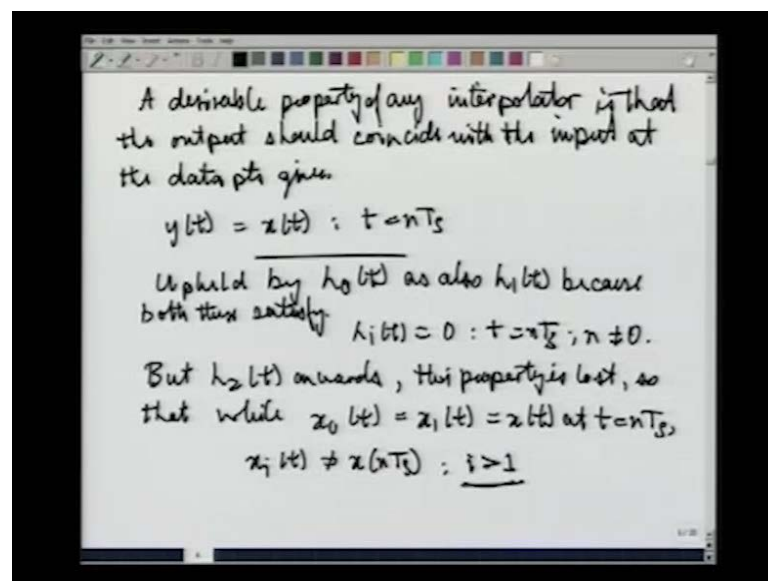 A desirable property of any interpolator is that
the output should coincide with the input at
the data pts given.
y(t) = x(t) : t = nTs
Upheld by h₀(t) as also h₁(t) because
both these satisfy
hᵢ(t) = 0 : t = nTs ; n ≠ 0.
But h₂(t) onwards, this property is lost, so
that while x₀(t) = x₁(t) = x(t) at t = nTs,
xᵢ(t) ≠ x(nTs) ; i > 1